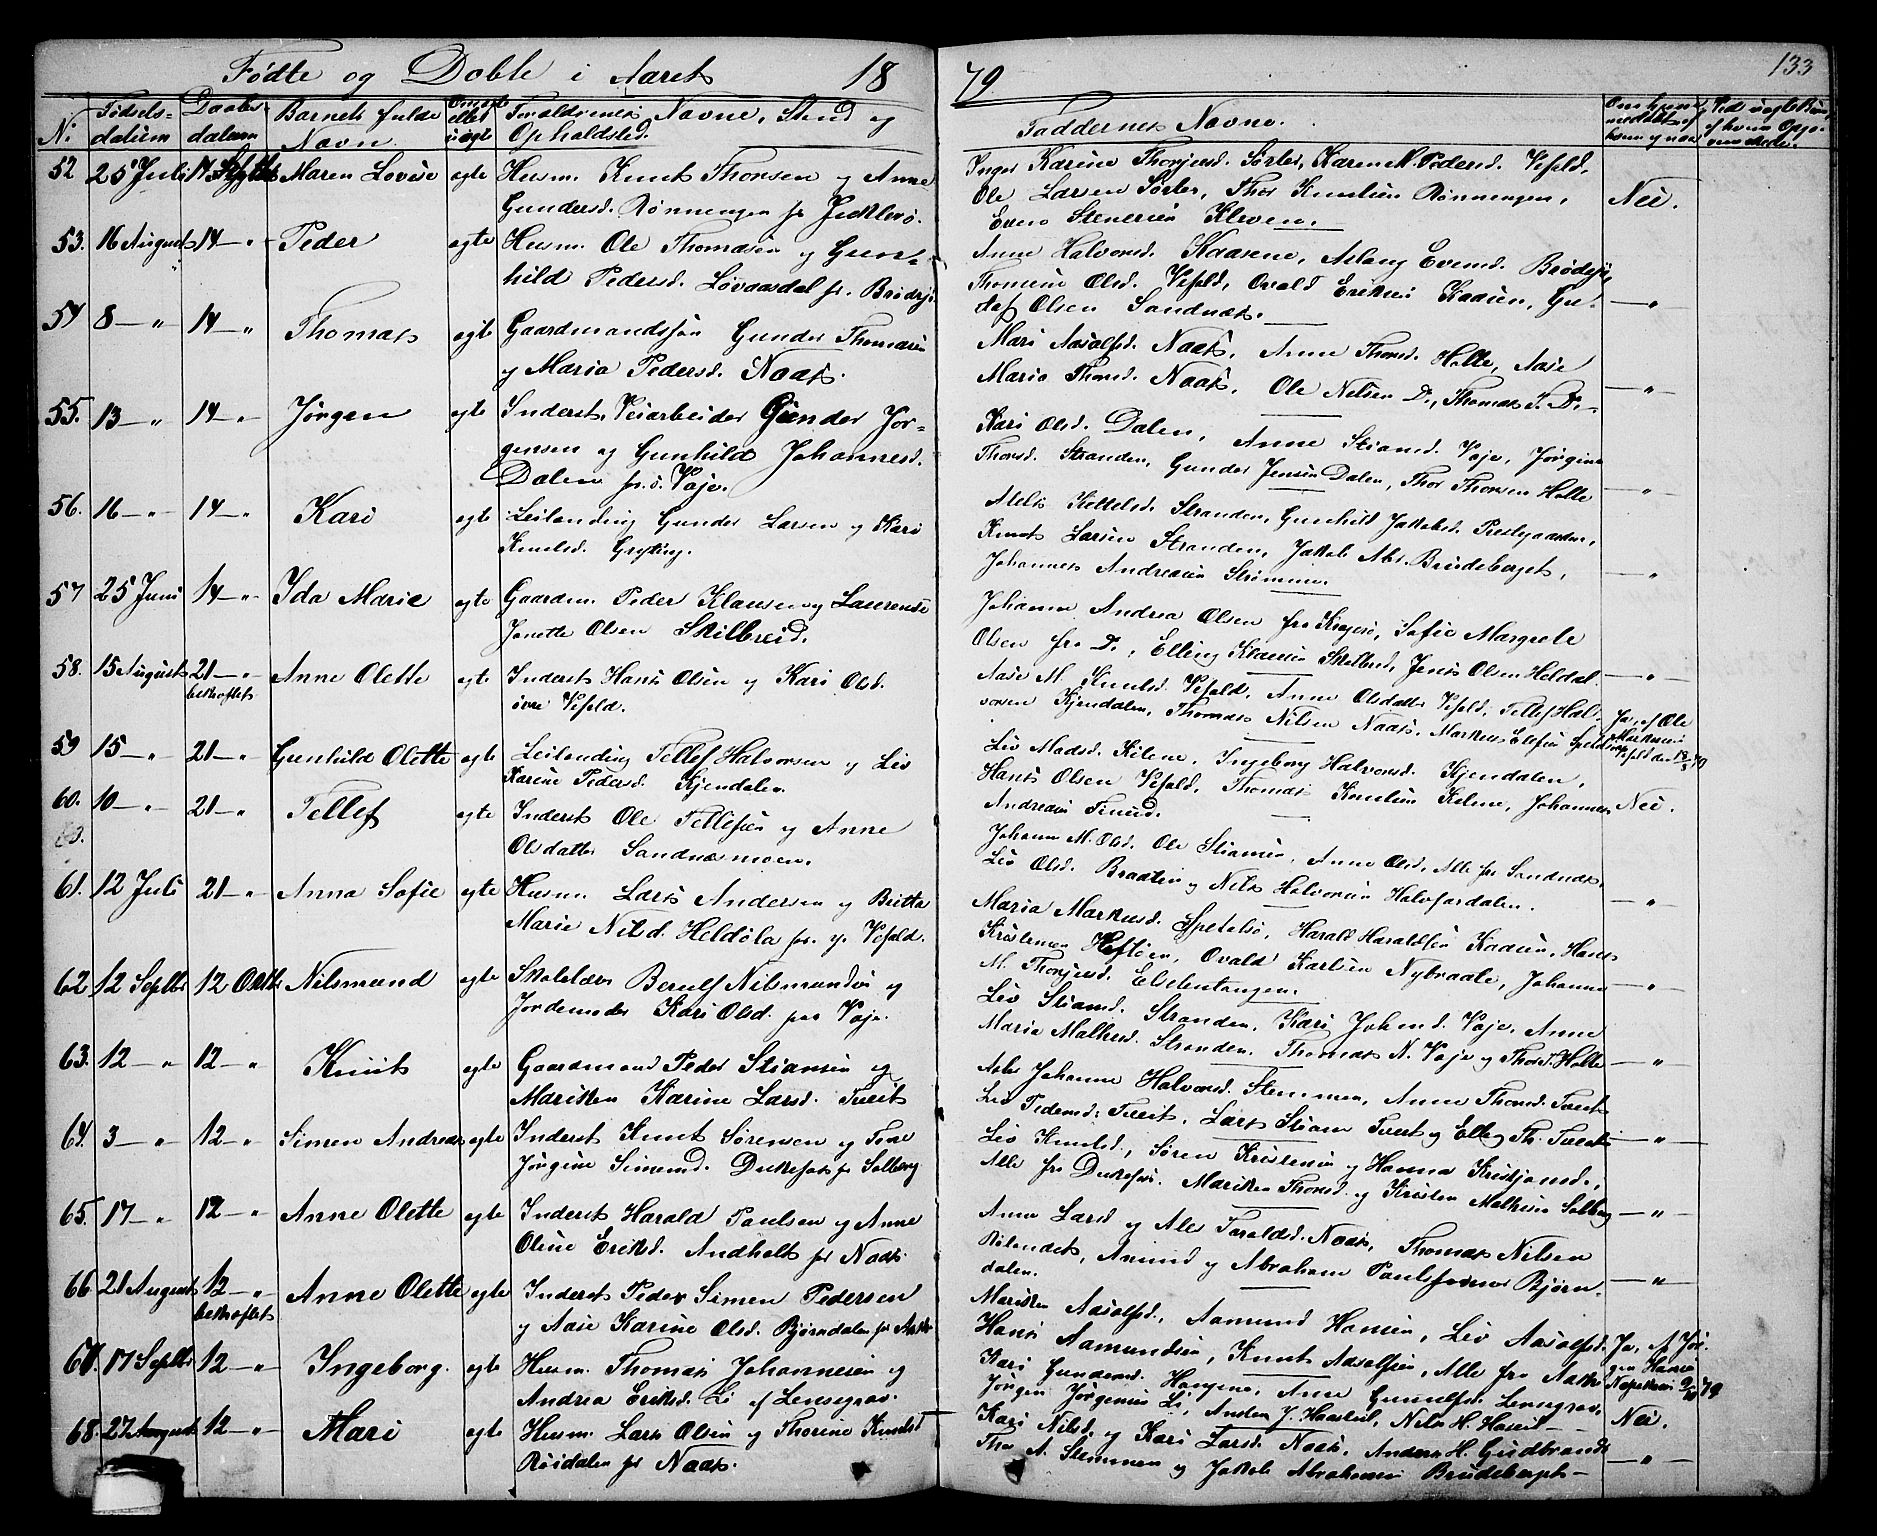 Fødte og Døbte i Aaret 18
79
133
N: Fødsels-datum Daabs-datum Barnets fulde Navn. Om ægte eller uægte Forældrenes Navne, Stand og Opholdsted.
Faddernes Navne.
52 25 Juli 14 Septbr Maren Lovise egte Husm. Knut Thorsen og Anne
Gundersd. Rønningen fr
Inger Karine Thorjusd. Sørbø, Karen M. Pedersd. Vefald,
Ole Larsen Sørbø, Thor Knutsen Rønningen, Nei.
Even Stenersen Kleven.
53. 16 August 14 — " Peder egte Husm. Ole Thomasen og Gun-
hild Pedersd. Løvaasdal fr. Brødsjø
Anne Halvorsd. Kaasene, Aslaug Evensd. Brødsjø,
Thomine Olsd. Vefald, Ovald Eriksen Kaasen, Gu- — " —
staf Olsen Sandnæs.
54 8 — " 14 — " Thomas egte Gaardmandssøn Gunder Thomasen
og Maria Pedersd. Naas.
Mari Aasolfsd. Naas, Anne Thorsd. Holte, Aase
Maria Thorsd. Naas, Ole Nilsen D., Thomas T. D. — " —
55. 13 — " 14 — " Jørgen egte Inderst, Veiarbeider Gunder Jør-
gensen og Gunhild Johannesd.
Dalen fr. ø. Voje.
Kari Olsd. Dalen, Anne Stiansd. Voje, Jørgine
Thorsd. Stranden, Gunder Jensen Dalen, Thor Thorsen Holte — " —
56. 16 — " 14 — " Kari egte Leilending Gunder Larsen og Kari
Knutsd. Gryting.
Kettelsd. Stranden, Gunhild Jakobsd. Prestgaarden,
Knut Larsen Stranden, Jakob Abr. Brudeberget,
Johannes Andreasen Strømme. — " —
57 25 Juni 14 — " Ida Marie egte Gaardm. Peder Klausen og Laurense
Janette Olsen Skilbreid.
Johanne Andrea Olsen fra Kragerø, Sofie Margrete
Olsen fra D., Elling Klausen Skilbred, Jens Olsen Heldal. — " —
58. 15 August 21 — " Anne Olette egte Inderst Hans Olsen og Kari Olsd.
bekræftet øvre Vefald.
Aase M. Knutsd. Vefald, Anne Olsdatter Vefald, Tellef Hal-
vorsen Kjendalen, Thomas Nilsen Naas, Markus Elefsen
Ja, af Ole
Markusen
Vefald den
59 15 — " 21 — " Gunhild Olette egte Leilending Tellef Halvorsen og Liv
Karine Pedersd. Kjendalen.
Liv Madsd. Kilene, Ingeborg Halvorsd. Kjendalen,
Hans Olsen Vefald, Thomas Knutsen Kilene, Johannes Nei.
Andreasen
60. 10 — " 21 — " Tellef egte Inderst Ole Tellefsen og Anne
Olsdatter Sandnæsmoen.
Johanne M. Olsd. Ole Stiansen, Anne Olsd. Alle fr Sandnæs,
Liv Olsd. Braaten og Nils Halvorsen Halvfardalen. — " —
61. 12 Juli 21 — " Anna Sofie egte Husm. Lars Andersen og Britta
Marie Nilsd. Heldøla fr. y. Vefald.
Maria Markusd. Spetalsø, Harald Haraldsen Kaasen, Hans
Kristensen Heftøen, Ovald Karlsen Nybraate, Johanne — " —
M. Thorjusd. Eidelentangen.
62 12 Septbr 12 Oktbr Nilsmund egte Skolelærer Berulf Nilsmundsen og
Jordemoder Kari Olsd. paa Voje.
Liv Stiansd. Stranden, Kari Johnsd. Voje, Anne
Maria Mathisd. Stranden, Thomas N. Voje og Thor T. Holte — " —
63. 12 — " 12 — " Knut egte Gaardmand Peder Stiansen og
Maritken Karine Larsd. Tveit
Johanne Halvorsd. Stemmen, Anne Thorsd. Tveit
Liv Pedersd. Tveit, Lars Stians. Tveit og Elling Th. Tveit — " —
64. 3 — " 12 — " Simen Andreas egte Inderst Knut Sørensen og Tone
Jørgine Simensd. Dukefos fr Solberg
Liv Knutsd, Søren Kristensen og Hanna Kristjansd.,
Alle fra Dukefos. Maritken Thorsd. og Kristen Mathisen Solberg — " —
65. 17 — " 12 — " Anne Olette egte Inderst Harald Paulsen og Anne
Oline Eriksd. Andholt fr Naas.
Anne Larsd og Ales Taraldsd. Naas, Thomas Nilsen
Rølandet, Amund og Abraham Paulssønner Bjørn- — " —
dalen.
66 21 August 12 — " Anne Olette egte Inderst Peder Simen Pedersen
bekræftet og Aase Karine Olsd. Bjørndalen fr
Maritken Aasolfsd, Aamund Hansen, Liv Aasolfsd.
Hans Aamundsen, Knut Aasolfsen, Alle fra
Ja, af Jør-
gen Hansen
67. 17 Septbr 12 — " Ingeborg. egte Husm. Thomas Johannesen og
Andrea Eriksd. Li af Lensegrav.
Kari Gundersd. Haugene, Anne Gunulfsd. Lensegrav,
Jørgen Jørgensen Li, Anders J. Nils H. Nei.
68. 27 August 12 — " Mari egte Husm. Lars Olsen og Thorine Knutsd
Røisdalen fr Naas.
Kari Nilsd. og Kari Larsd. Naas, Anders H. Gudbrands
Thor A. Stemmen og Jakob Abrahamsen Brudeberget — " —